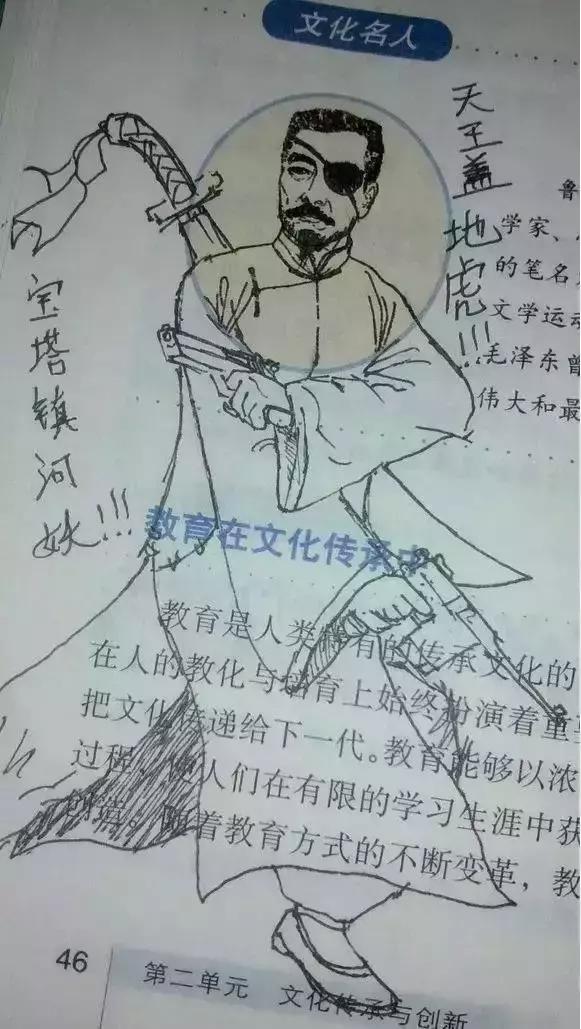 文化名人
天王盖地虎!!!
宝塔镇河妖!!!
鲁
学家、
的笔名
文学运动
毛泽东曾
伟大和最
教育在文化传承中
教育是人类特有的传承文化的
在人的教化与培育上始终扮演着重要
把文化传递给下一代。教育能够以浓
过程,使人们在有限的学习生涯中获
创造。随着教育方式的不断变革，教
46
第二单元 文化传承与创新